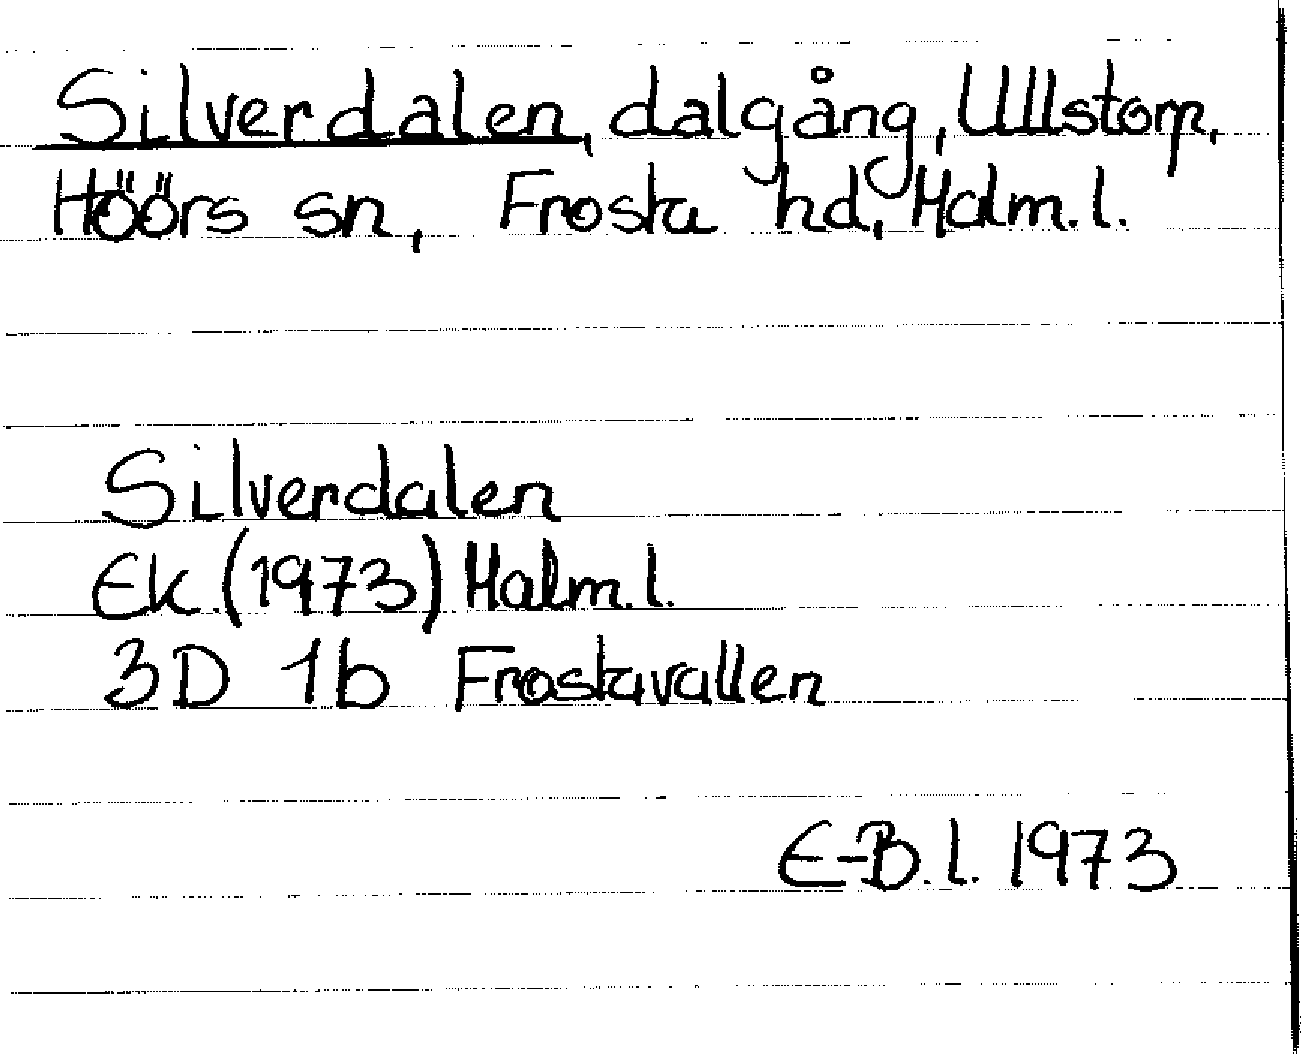 Silverdalen, dalgång, Ullstorp,
Höörs sn, Frosta hd, Malm. l.
Silverdalen
Ek (1973) Malm. l.
3D 1b Frostavallen
E-B. l. 1973